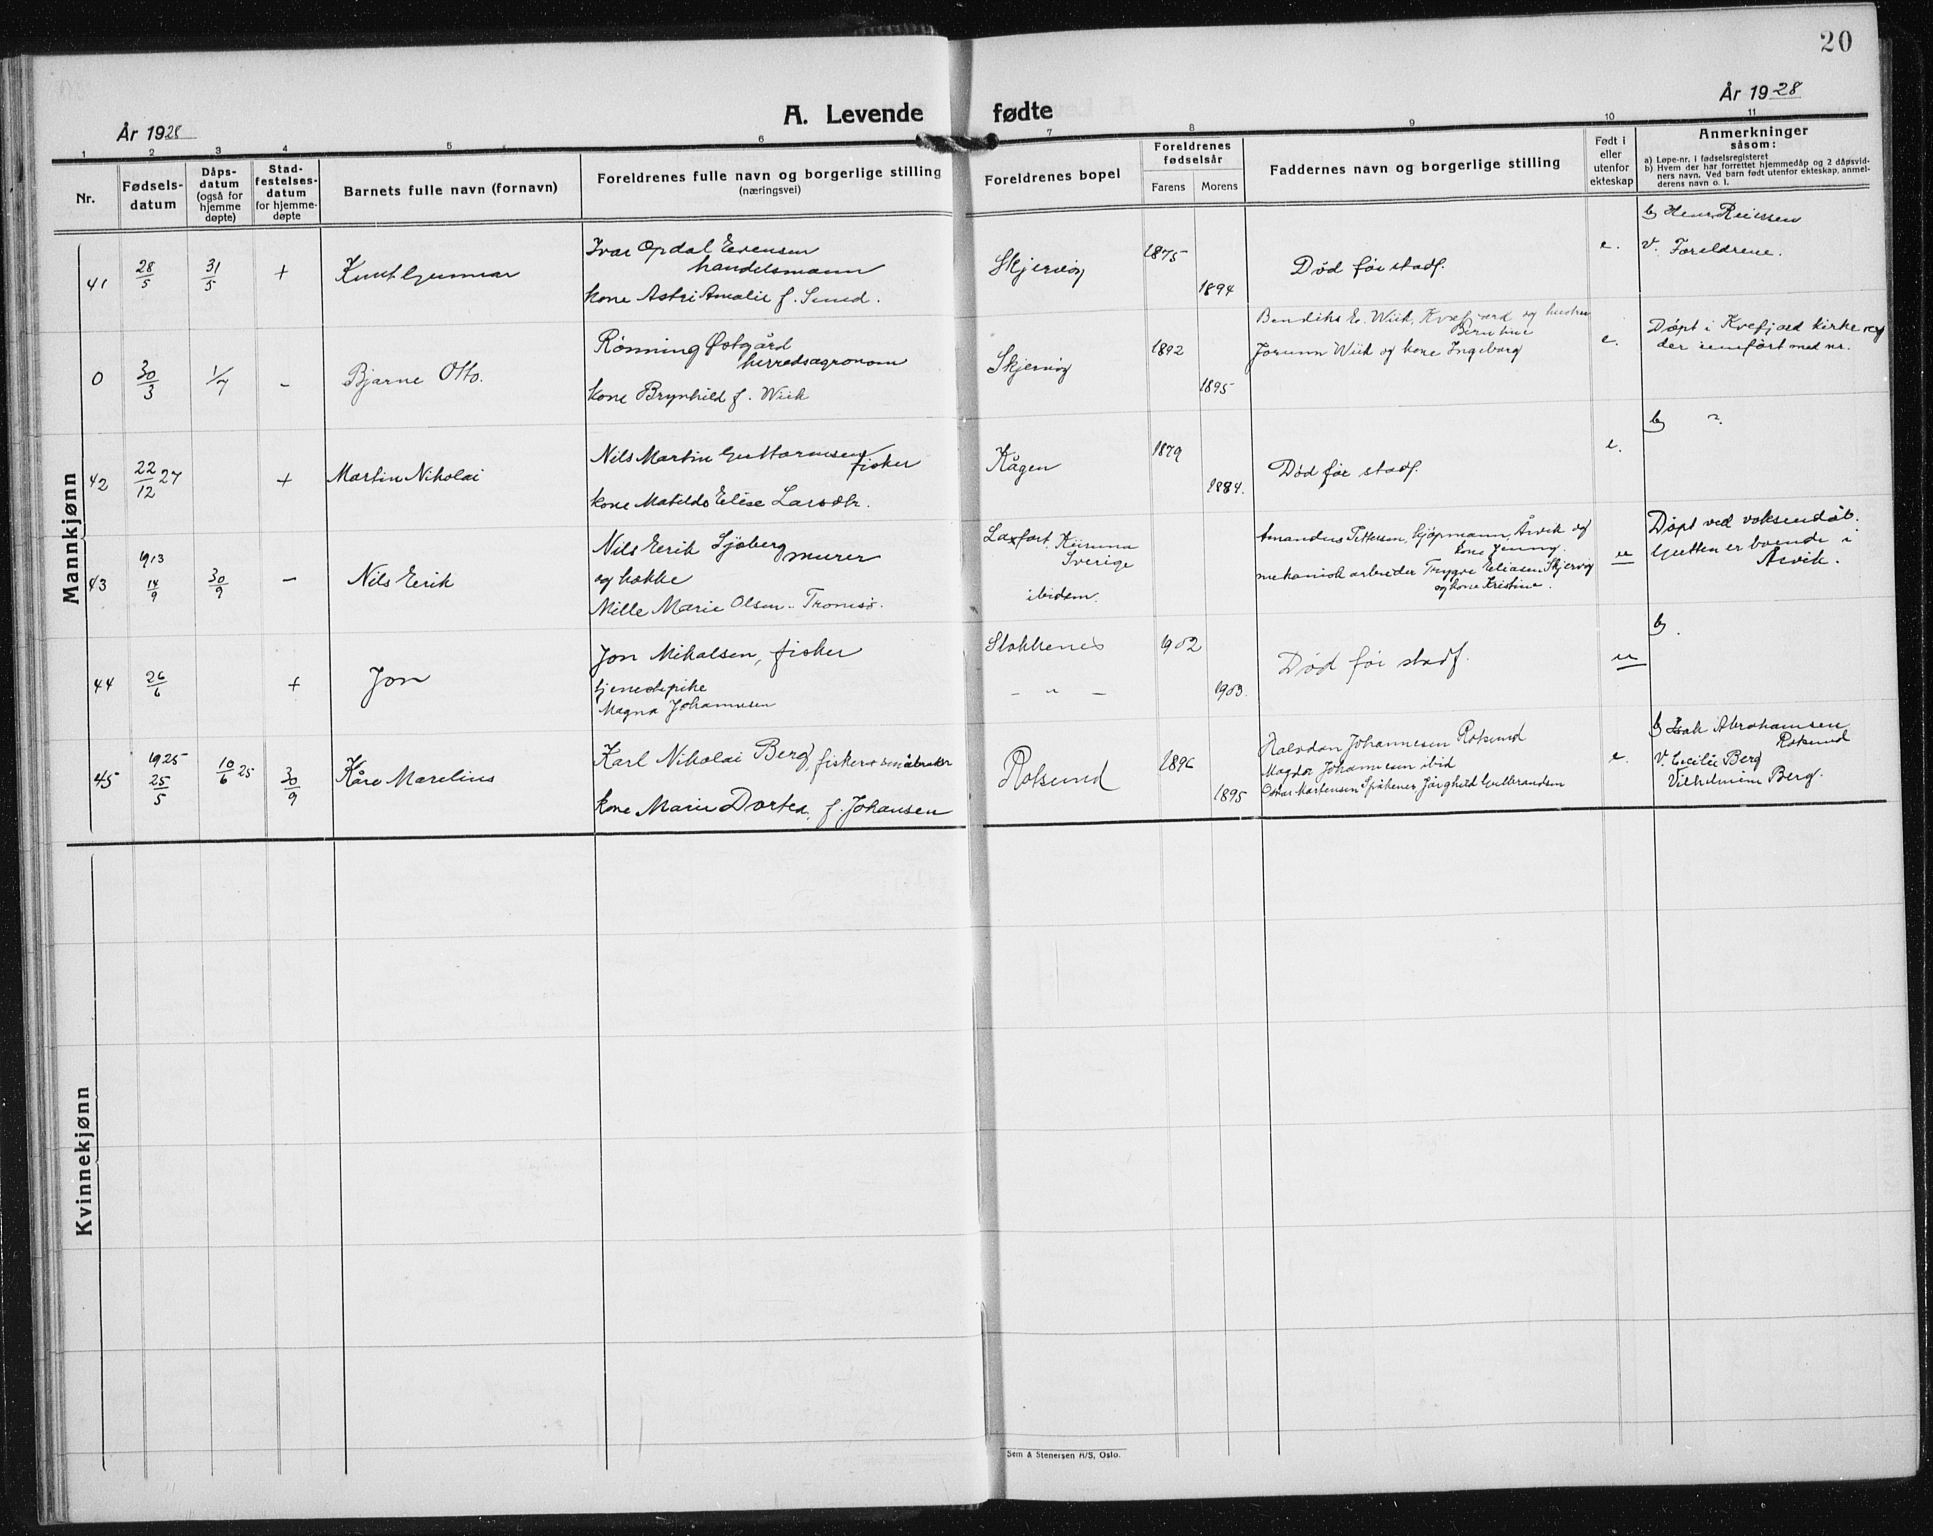 20
År 1928
A. Levende fødte
År 1928
1 2 3 4 5 6 7 8 9 10 11
Nr.
Fødsels-
datum
Dåps-
datum
(også for
hjemme
døpte)
Stad-
festelses-
datum
for hjemme-
døpte
Barnets fulle navn (fornavn)
Foreldrenes fulle navn og borgerlige stilling
(næringsvei)
Foreldrenes bopel
Foreldrenes
fødselsår
Farens Morens
Faddernes navn og borgerlige stilling
Født i
eller
utenfor
ekteskap
Anmerkninger
såsom:
a) Løpe-nr. i fødselsregisteret
b) Hvem der har forrettet hjemmedåp og 2 dåpsvid-
ners navn. Ved barn født utenfor ekteskap, anmel-
derens navn o. l.
Mannkjønn
41 28/5 31/5 + Knut Gunnar
Ivar Opdal Evensen
handelsmann
kone Astri Amalie f. Smed.
Skjervøy
1875
1894
Død før stadf.
e.
b Henr. 
V. Foreldrene.
0 30/3 1/7 - Bjarne Otto.
Rønning Østgård
herredsagronom
kone Brynhild f. Wiik
Skjervøy
1892
1895
Bendiks E. Wiik, Kvefjord og hustru
Berntine
Jorunn Wiik og kone Ingeborg
e.
Døpt i Kvefjord kirke og
der innført med nr.
42 22/12 27 + Martin Nikolai
Nils Martin Guttormsen
fisker
kone Matilde Elise Larsdtr.
Kågen
1879
1884.
Død før stadf.
e.
b "
43 1913 14/9 30/9 - Nils Erik
Nils Erik Sjøberg murer
og kokke
Mille Marie Olsen - Tromsø.
Laxfort, Kiiruna
Sverige
ibidem.
Amandus Pettersen, kjøpmann, Årvik og
kone Jenny.
mekanisk arbeider Trygve Eliasen Skjervøy
og kone Kristine.
u
Døpt ved voksendåb.
Gutten er boende i
Årvik.
44 26/6 + Jon
Jon Mikalsen, fisker
tjenestepike
Magna Johannesen
Stokkenes
- " -
1902
1903.
Død før stadf.
u
b.
45 1925 25/5 10/6 25 30/9 Kåre Marelius
Karl Nikolai Berg, fisker o småbruker
kone Marie Dortea, f. Johansen
Rotsund
1896
1895
Halvdan Johannesen Rotsund
Magda Johannesen ibid
Oskar Mortensen Spåkenes Jørghild Gulbrandsen
e.
b Isak Abrahamsen
Rotsund
V. Cecilie Berg
Vilhelmine Berg.
Kvinnekjønn
Sem & Stenersen A/S, Oslo.